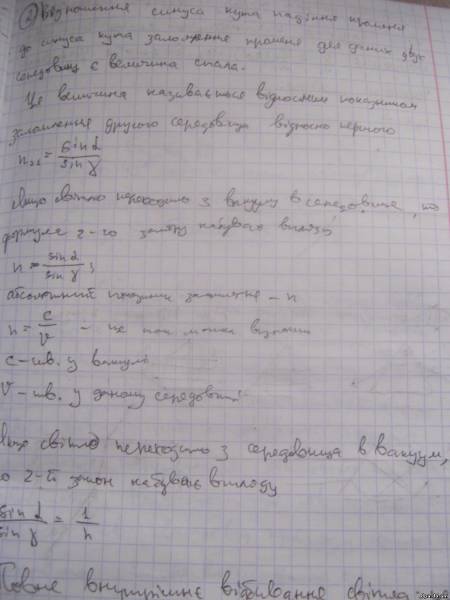 2) Відношення синуса кута падіння променя
до синуса кута заломлення променя для даних двух
середовищ є величина стала.
Це величина називається відносним показником
заломлення другого середовища відносно першого
n₂₁ = sin α / sin γ
якщо світло переходить з вакууму в середовище, то
формула 2-го закону набуває вигляду
n = sin α / sin γ ;
абсолютний показник заломлення – n
n = c / V – це можна
c – шв. у вакумі
V – шв. у даному середовищі
якщо світло переходить з середовища в вакуум,
то 2-й закон набуває вигляду
sin α / sin γ = 1 / n
Повне внутрішнє відбивання світла